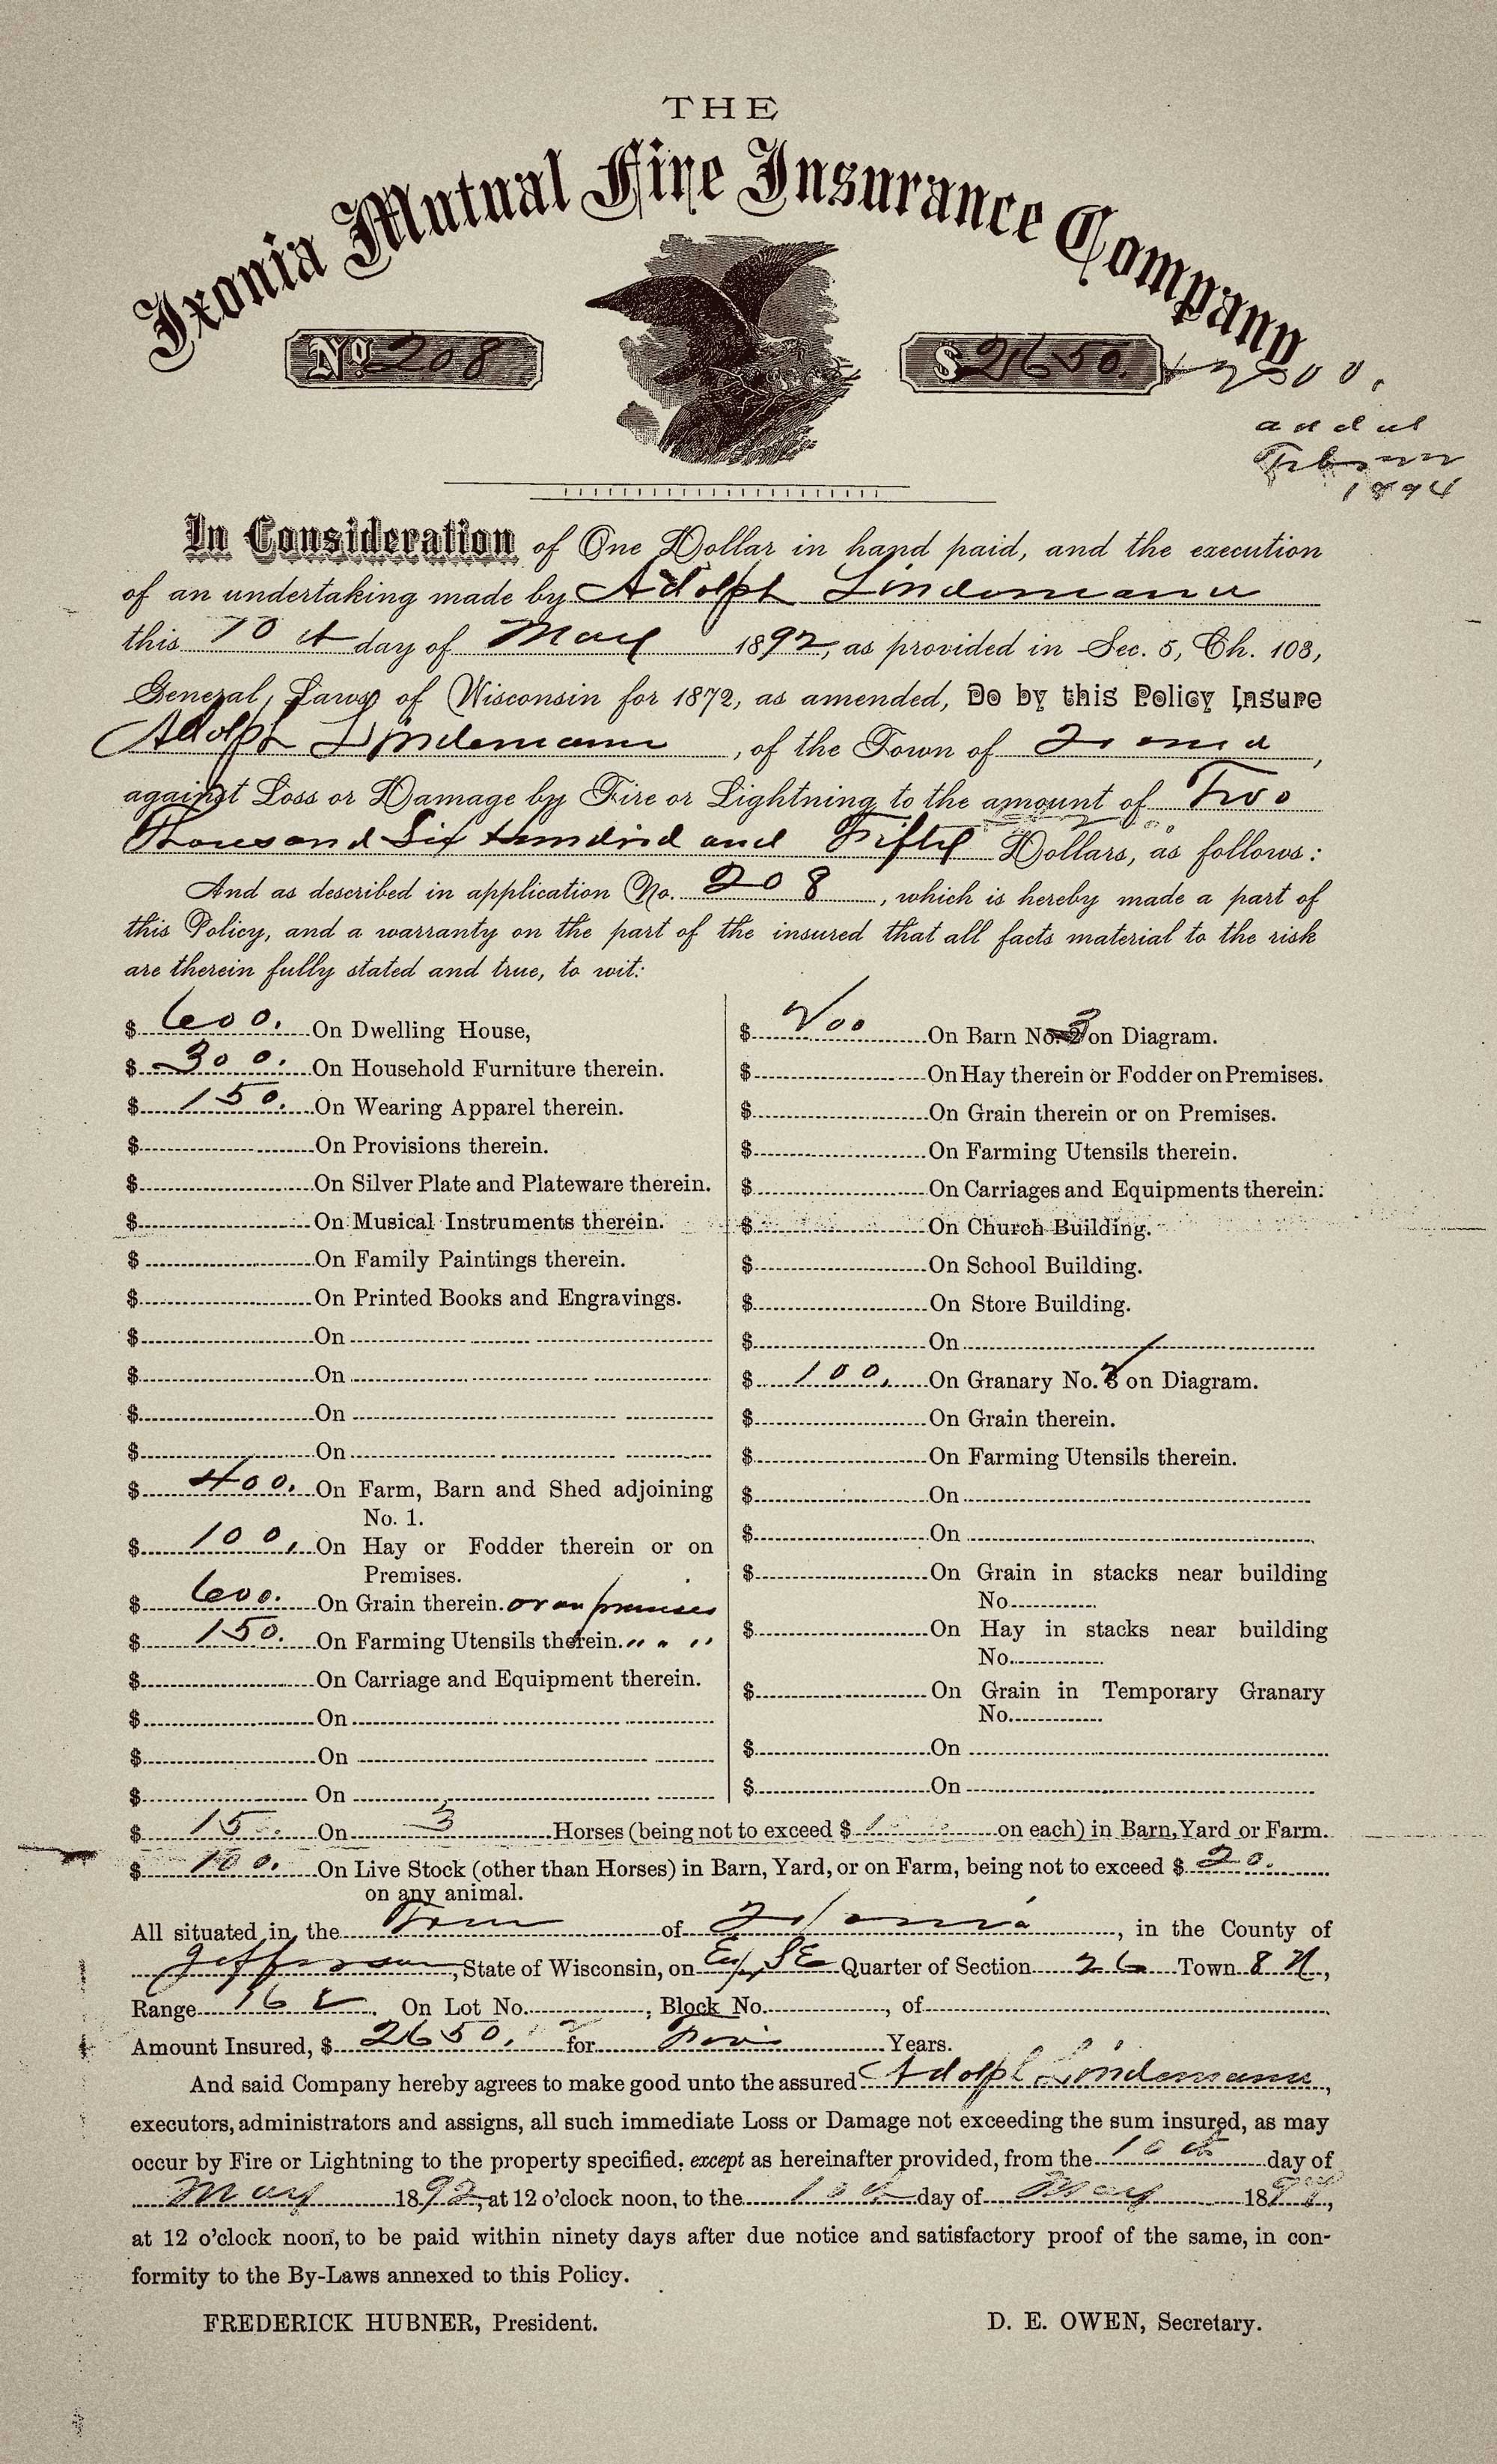 THE
Ixonia Mutual Fire Insurance Company
No. 208
$2650.
00.
1894
In Consideration of One Dollar in hand paid, and the execution
of an undertaking made by Adolph Lindemann
this 10th day of May 1892, as provided in Sec. 5, Ch. 103,
General Laws of Wisconsin for 1872, as amended, Do by this Policy Insure
Adolph Lindemann, of the Town of Ixonia,
against Loss or Damage by Fire or Lightning to the amount of Two
Thousand Six Hundred and Fifty Dollars, as follows:
And as described in application No. 208, which is hereby made a part of
this Policy, and a warranty on the part of the insured that all facts material to the risk
are therein fully stated and true, to wit:
$ 600. On Dwelling House,
$ 300. On Household Furniture therein.
$ 150. On Wearing Apparel therein.
$ On Provisions therein.
$ On Silver Plate and Plateware therein.
$ On Musical Instruments therein.
$ On Family Paintings therein.
$ On Printed Books and Engravings.
$ On
$ On
$ On
$ On
$ 400. On Farm, Barn and Shed adjoining
No. 1.
$ 100. On Hay or Fodder therein or on
Premises.
$ 600. On Grain therein. or on premises
$ 150. On Farming Utensils therein. " " "
$ On Carriage and Equipment therein.
$ On
$ On
$ On
$ 200 On Barn No. 3 on Diagram.
$ On Hay therein or Fodder on Premises.
$ On Grain therein or on Premises.
$ On Farming Utensils therein.
$ On Carriages and Equipments therein.
$ On Church Building.
$ On School Building.
$ On Store Building.
$ On
$ 100. On Granary No. 2 on Diagram.
$ On Grain therein.
$ On Farming Utensils therein.
$ On
$ On
$ On Grain in stacks near building
No.
$ On Hay in stacks near building
No.
$ On Grain in Temporary Granary
No.
$ On
$ On
$ On 3 Horses (being not to exceed $ on each) in Barn, Yard or Farm.
$ 100. On Live Stock (other than Horses) in Barn, Yard, or on Farm, being not to exceed $ 20.
on any animal.
All situated in the Town of Ixonia, in the County of
Jefferson, State of Wisconsin, on E 1/2 SE Quarter of Section 26 Town 8 N,
Range 16 E. On Lot No. , Block No. , of
Amount Insured, $ 2650. for Years.
And said Company hereby agrees to make good unto the assured Adolph Lindemann,
executors, administrators and assigns, all such immediate Loss or Damage not exceeding the sum insured, as may
occur by Fire or Lightning to the property specified, except as hereinafter provided, from the 10th day of
May 1892, at 12 o'clock noon, to the 10th day of May 189,
at 12 o'clock noon, to be paid within ninety days after due notice and satisfactory proof of the same, in con-
formity to the By-Laws annexed to this Policy.
FREDERICK HUBNER, President.
D. E. OWEN, Secretary.